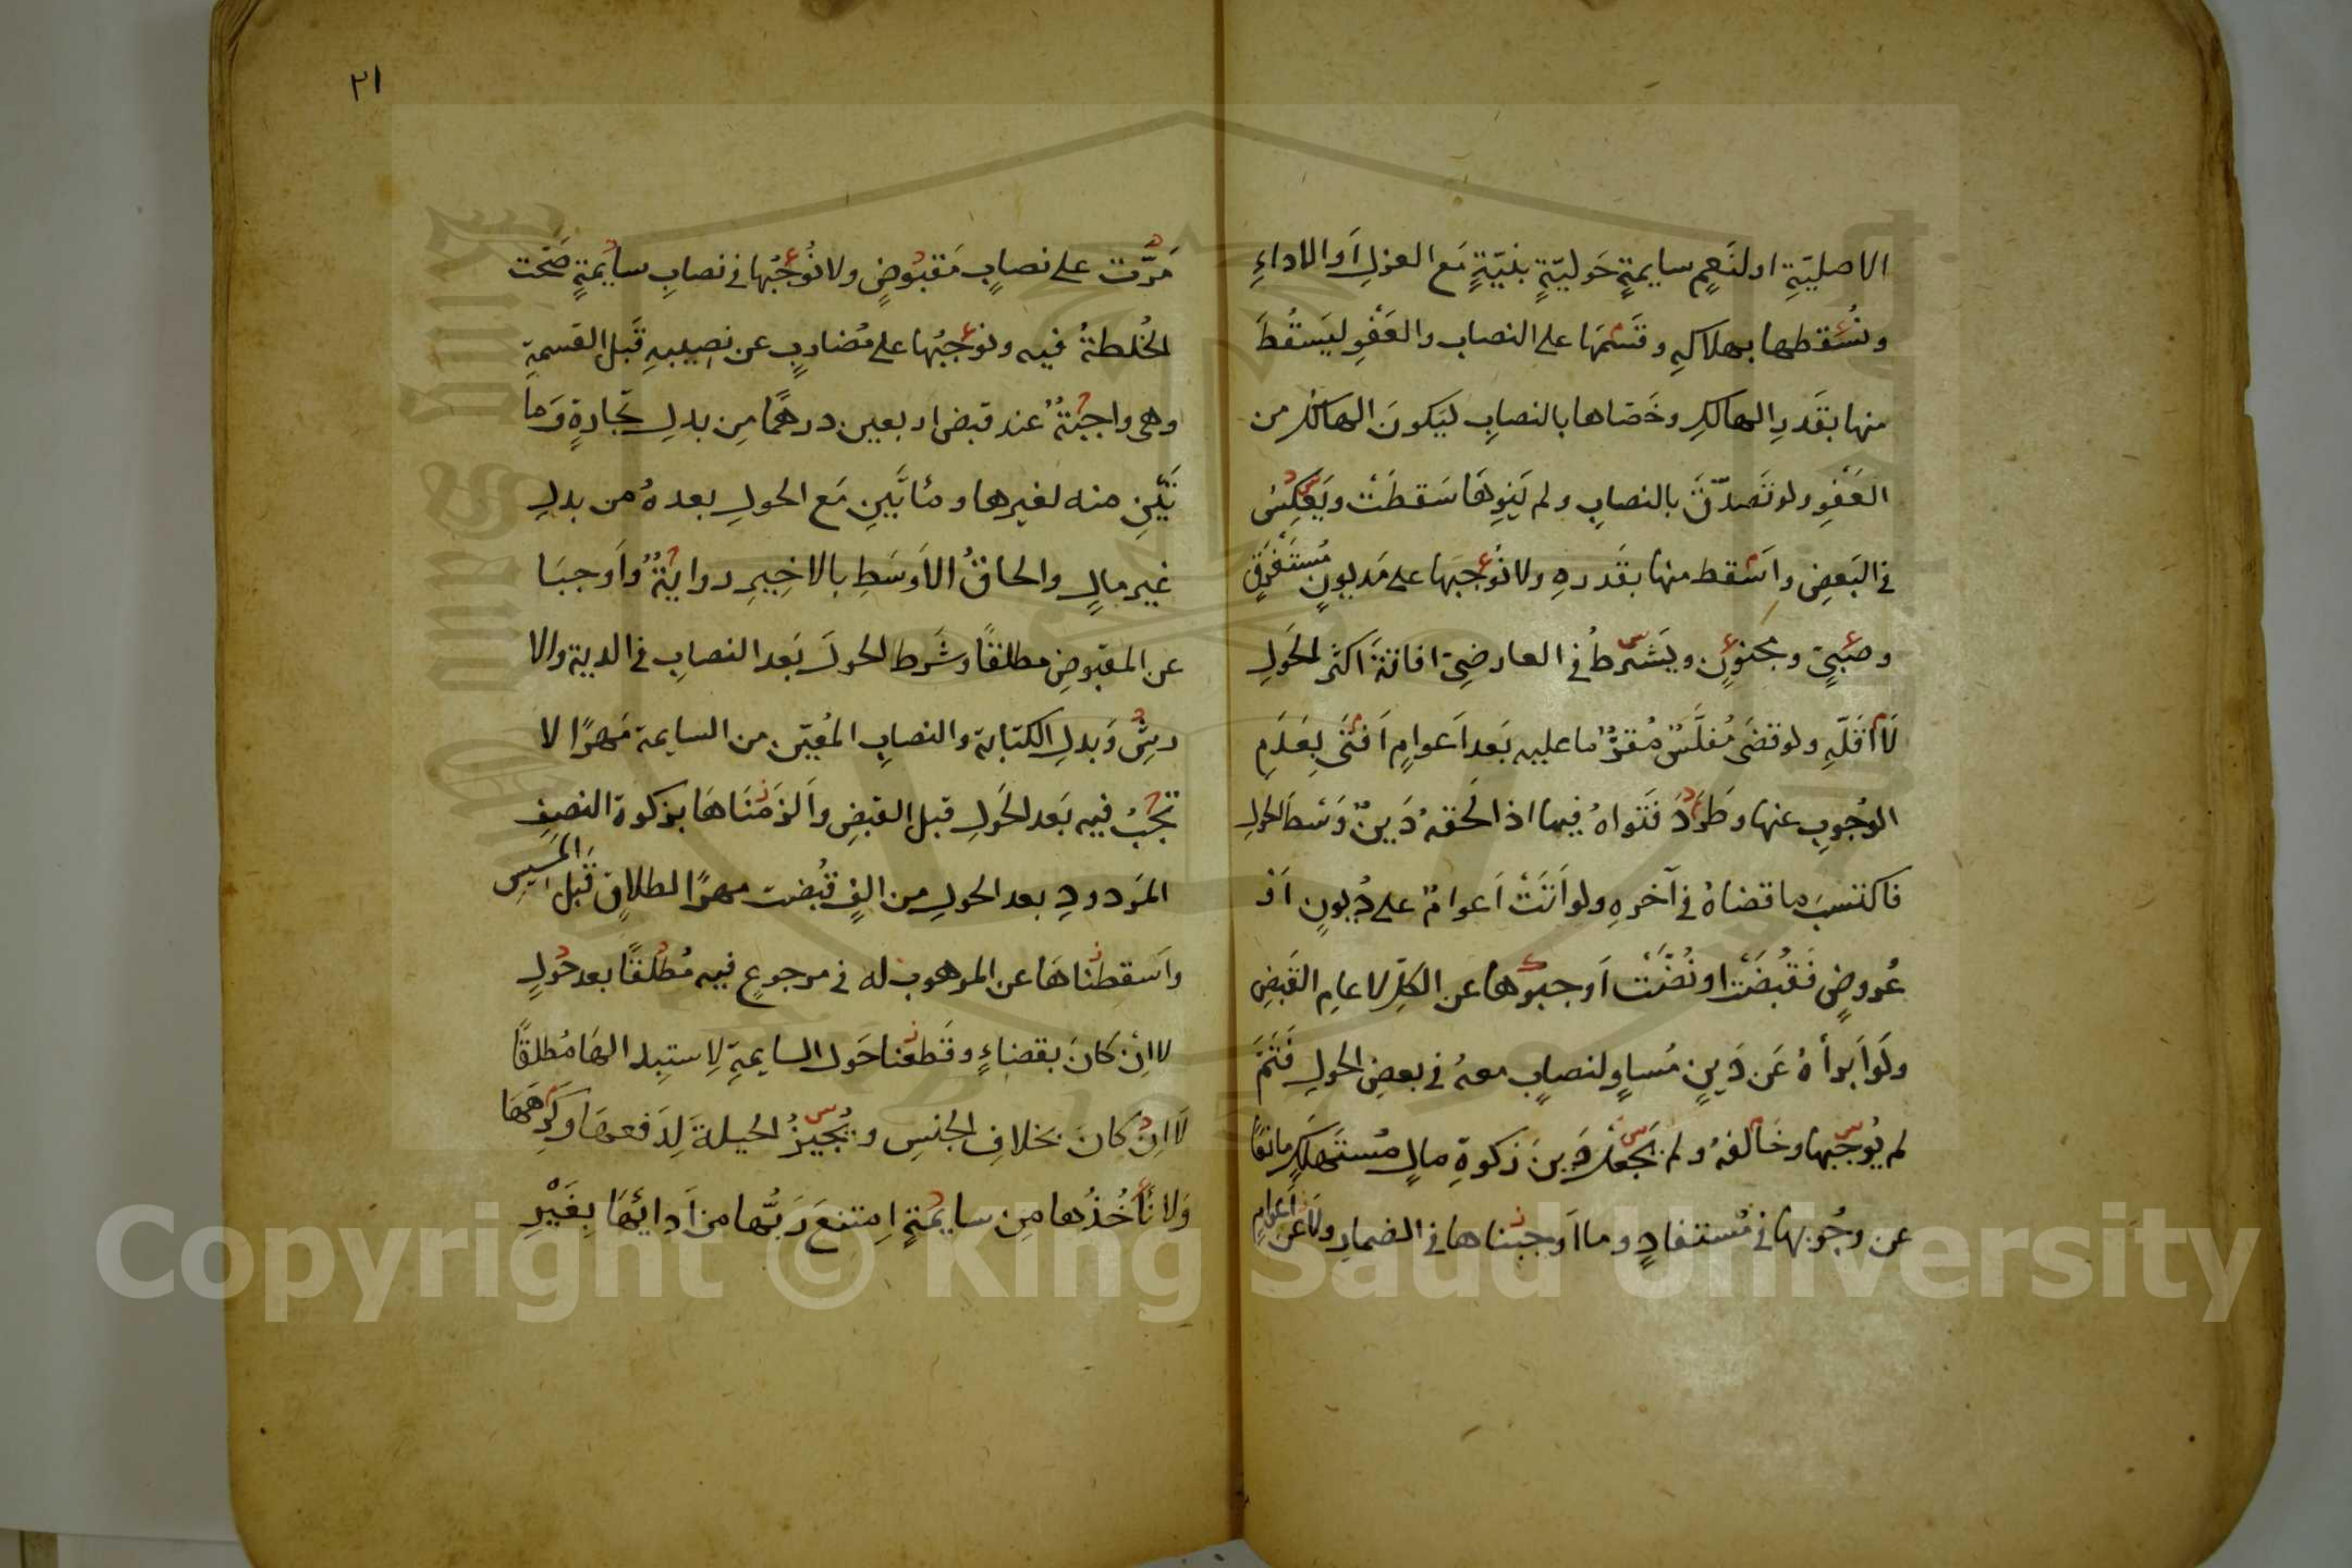 الاصليّةِ او لنَعِمٍ سايمةٍ حَوليّةٍ بنيّةٍ مَع العزلِ اَو الاداءِ
ونُسْقطها بهلاكهِ وقَسَّمَها على النصاب والعَفْوِ ليَسقُطَ
منها بقَدرِ الهالكِ وخَصّاها بالنصابِ ليَكونَ الهالكُ من
العَفْوِ ولو تَصَدّقَ بالنصابِ ولم يَنوِهَا سَقطَتْ ويَعكِسُ
في البَعضِ واَسْقط منها بقَدرهِ ولا نُوْجبَها على مَديونٍ مُستَغرَقٍ
وصَبيٍّ ومجنونٍ ويَشترطُ في العارضيّ افاقتَهُ اكثرَ الحَولِ
لَا اَقَلّهِ ولو قضَى مُفلَّسٌ مُقرٌّ ما عليه بَعد اَعوامٍ اَفتَى بِعَدَمِ
الوُجوبِ عنها وطَرَدَ فَتواهُ فيما اذا لَحقهُ دَينٌ وَسْطَ الحَولِ
فاكتسبَ ما قضاهُ في آخرهِ ولو اَتَتْ اَعوامٌ على دُيونٍ اَو
عُروضٍ فَقُبضَتْ او نُضّتْ اَوجبوها عن الكلِّ لا عامِ القَبضِ
ولَو اَبرأهُ عَن دَينٍ مُساوٍ لنصابٍ معهُ في بعضِ الحولِ فَتَمَّ
لم يُوجبها وخَالفهُ ولم يَجعَلْ دَينَ زكوةِ مالٍ مُستَهلَكٍ مانعًا
عن وجُوبها في مُستفادٍ وما اَوجبناها في الضمارِ ولا عن اَعوامٍ
٢١
مَرَّت على نصابٍ مَقبُوضٍ ولا نُوْجبُها في نصابِ سايمةٍ صَحّت
الخُلطةُ فيه ونوْجبُها على مُضاربٍ عن نصيبهِ قَبلَ القسمةِ
وهي واجبَةٌ عند قبض اربعين درهمًا مِن بدلِ تجارةٍ وَمأ
تَيْنِ منه لغيرها ومأتَيْنِ مَع الحولِ بعدهُ من بدلِ
غيرِ مالٍ والحاقُ الاَوسَطِ بالاخِيرِ روايةٌ واَوجبَا
عن المقبوضِ مطلقًا وشَرط الحولَ بَعد النصابِ في الدية والا
رشِ وَبدلِ الكتابة والنصابِ المُعيّنِ من السايمة مَهرًا لا
تجبُ فيه بَعد الحَولِ قبل القبضِ واَلزَمْناهَا بزكوة النصفِ
المَردودِ بعد الحولِ من الفٍ قبُضت مهرًا لطلاقٍ قَبل المَسيسِ
واَسقطناهَا عن الموهوب له في مرجوعٍ فيه مُطلقًا بعد حَولٍ
لا اِنْ كَانَ بقضاءٍ وقَطعْنا حَول السايمةِ لِاستِبدالهَا مُطلقًا
لَا اِنْ كانَ بخلافِ الجنسِ ويُجيزُ الحيلةَ لِدَفعهَا وكَرِهَهَا
وَلا نأخُذُها مِن سايمةٍ اِمتنعَ رَبُّها من اَدائِهَا بِغَيْرِ
Copyright © King Saud University